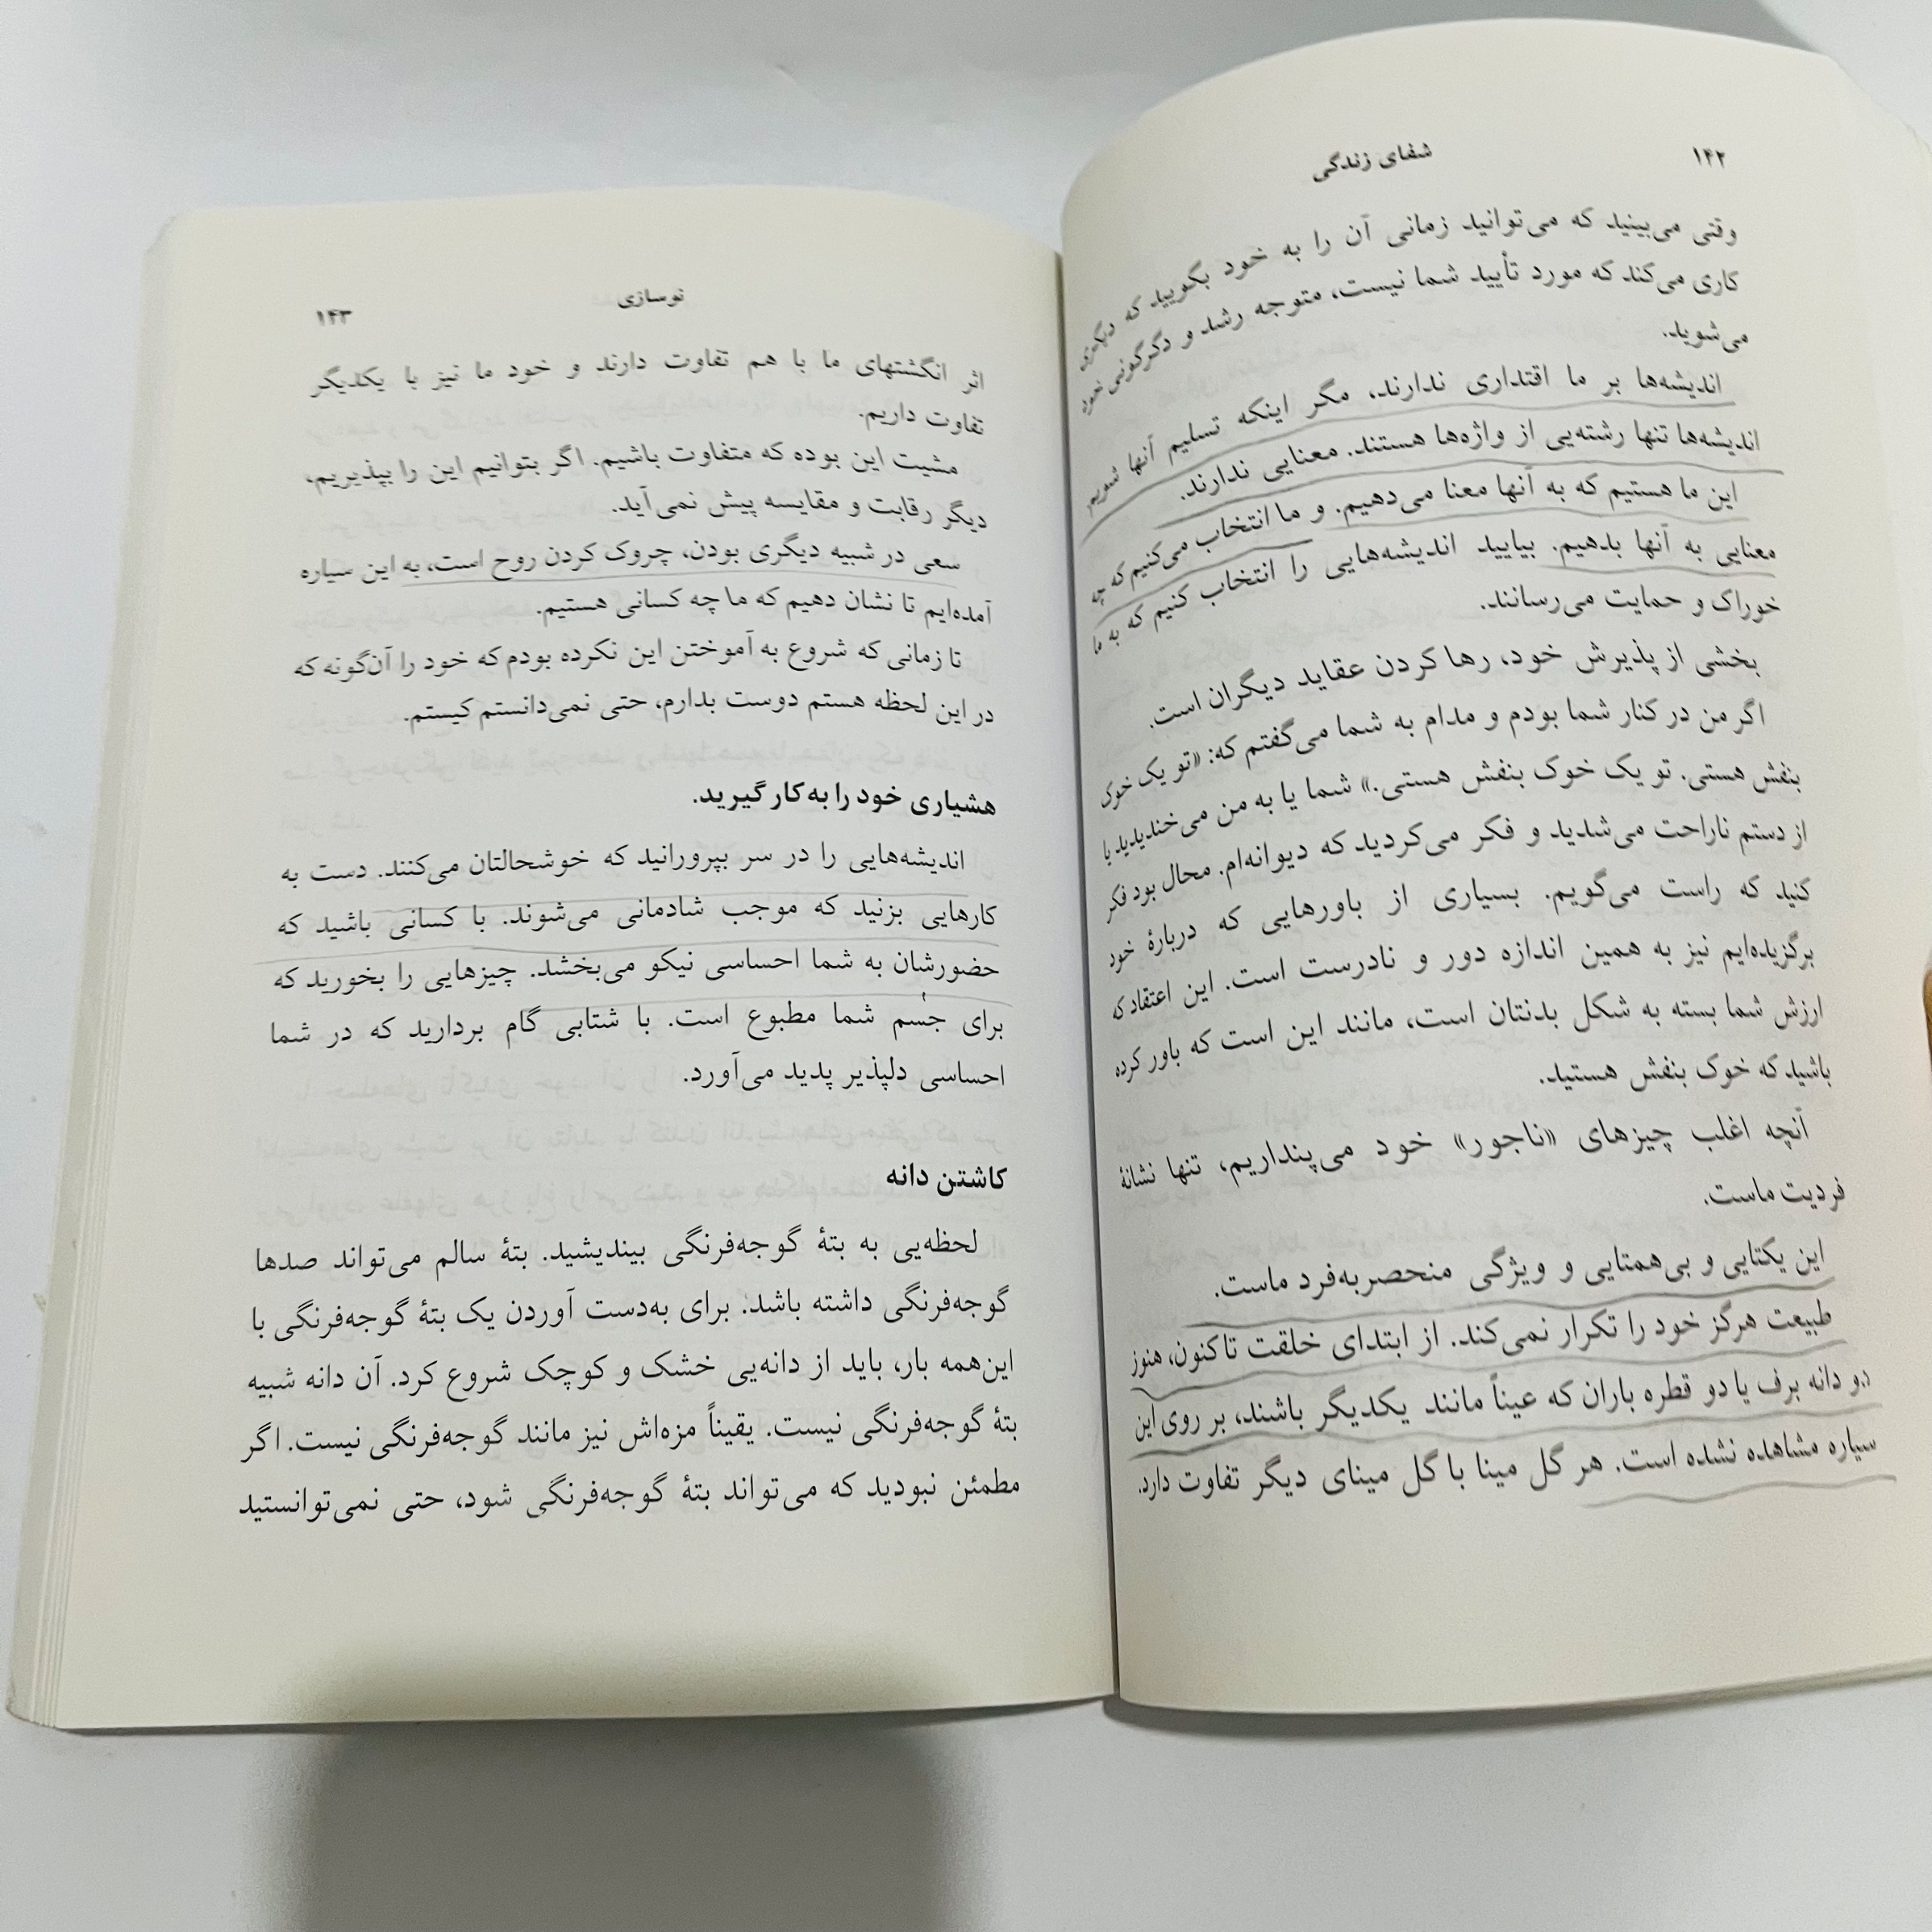 ۱۴۲
شفای زندگی
وقتی می‌بینید که می‌توانید زمانی آن را به خود بگویید که دیگری
کاری می‌کند که مورد تأیید شما نیست، متوجه رشد و دگرگونی خود
می‌شوید.
اندیشه‌ها بر ما اقتداری ندارند، مگر اینکه تسلیم آنها شویم.
اندیشه‌ها تنها رشته‌یی از واژه‌ها هستند. معنایی ندارند.
این ما هستیم که به آنها معنا می‌دهیم. و ما انتخاب می‌کنیم که چه
معنایی به آنها بدهیم. بیایید اندیشه‌هایی را انتخاب کنیم که به ما
خوراک و حمایت می‌رسانند.
بخشی از پذیرش خود، رها کردن عقاید دیگران است.
اگر من در کنار شما بودم و مدام به شما می‌گفتم که: «تو یک خوک
بنفش هستی. تو یک خوک بنفش هستی.» شما یا به من می‌خندیدید یا
از دستم ناراحت می‌شدید و فکر می‌کردید که دیوانه‌ام. محال بود فکر
کنید که راست می‌گویم. بسیاری از باورهایی که دربارهٔ خود
برگزیده‌ایم نیز به همین اندازه دور و نادرست است. این اعتقاد که
ارزش شما بسته به شکل بدنتان است، مانند این است که باور کرده
باشید که خوک بنفش هستید.
آنچه اغلب چیزهای «ناجور» خود می‌پنداریم، تنها نشانهٔ
فردیت ماست.
این یکتایی و بی‌همتایی و ویژگی منحصربه‌فرد ماست.
طبیعت هرگز خود را تکرار نمی‌کند. از ابتدای خلقت تاکنون، هنوز
دو دانه برف یا دو قطره باران که عیناً مانند یکدیگر باشند، بر روی این
سیاره مشاهده نشده است. هر گل مینا با گل مینای دیگر تفاوت دارد.
نوسازی
۱۴۳
اثر انگشتهای ما با هم تفاوت دارند و خود ما نیز با یکدیگر
تفاوت داریم.
مشیت این بوده که متفاوت باشیم. اگر بتوانیم این را بپذیریم،
دیگر رقابت و مقایسه پیش نمی‌آید.
سعی در شبیه دیگری بودن، چروک کردن روح است، به این سیاره
آمده‌ایم تا نشان دهیم که ما چه کسانی هستیم.
تا زمانی که شروع به آموختن این نکرده بودم که خود را آن‌گونه که
در این لحظه هستم دوست بدارم، حتی نمی‌دانستم کیستم.
هشیاری خود را به‌کار گیرید.
اندیشه‌هایی را در سر بپرورانید که خوشحالتان می‌کنند. دست به
کارهایی بزنید که موجب شادمانی می‌شوند. با کسانی باشید که
حضورشان به شما احساسی نیکو می‌بخشد. چیزهایی را بخورید که
برای جسم شما مطبوع است. با شتابی گام بردارید که در شما
احساسی دلپذیر پدید می‌آورد.
کاشتن دانه
لحظه‌یی به بتهٔ گوجه‌فرنگی بیندیشید. بتهٔ سالم می‌تواند صدها
گوجه‌فرنگی داشته باشد. برای به‌دست آوردن یک بتهٔ گوجه‌فرنگی با
این‌همه بار، باید از دانه‌یی خشک و کوچک شروع کرد. آن دانه شبیه
بتهٔ گوجه‌فرنگی نیست. یقیناً مزه‌اش نیز مانند گوجه‌فرنگی نیست. اگر
مطمئن نبودید که می‌تواند بتهٔ گوجه‌فرنگی شود، حتی نمی‌توانستید